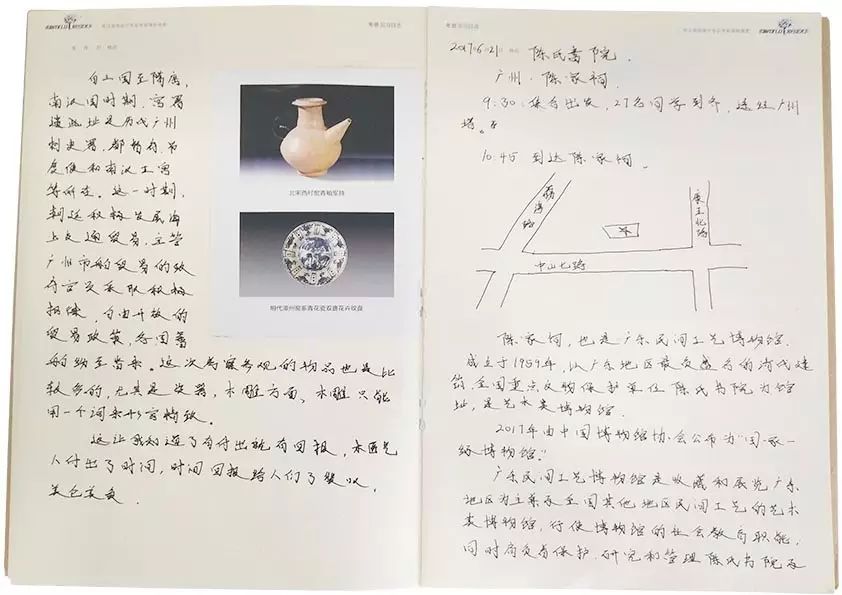 自三国至隋唐,
南汉国时期,宫署
遗址是历代广州
刺史署、都督府、节
度使和南汉王宫
等所在。这一时期,
积极发展海
上交通贸易,主管
广州市舶贸易的
官员采取积极
自由开放的
贸易政策,各国蕃
舶
这次 参观的物品也是比
较多的,尤其是瓷器,木雕方面,木雕只能
用一个词来形容精致。
这让我知道了有付出就有回报,木匠
人付出了时间,时间回报给人们了
北宋西村窑青釉军持
明代漳州窑系青花瓷双鹿花卉纹盘
考察实习日志
2017.6.21 陈氏书院.
广州·陈家祠.
9:30:集合出发,27名同学到齐,途经广州
塔。
10:45 到达陈家祠.
荔湾路
康王北路
中山七路
陈家祠,也是广东民间工艺博物馆.
成立于1959年,以广东地区最负盛名的清代建
筑、全国重点文物保护单位陈氏书院为馆
址,是艺术类博物馆.
2017年由中国博物馆协会公布为“国家一
级博物馆.”
广东民间工艺博物馆是收藏和展览广东
地区为主兼及全国其他地区民间工艺的艺术
类博物馆,行使博物馆的社会教育职能,
同时肩负着保护、研究和管理陈氏书院